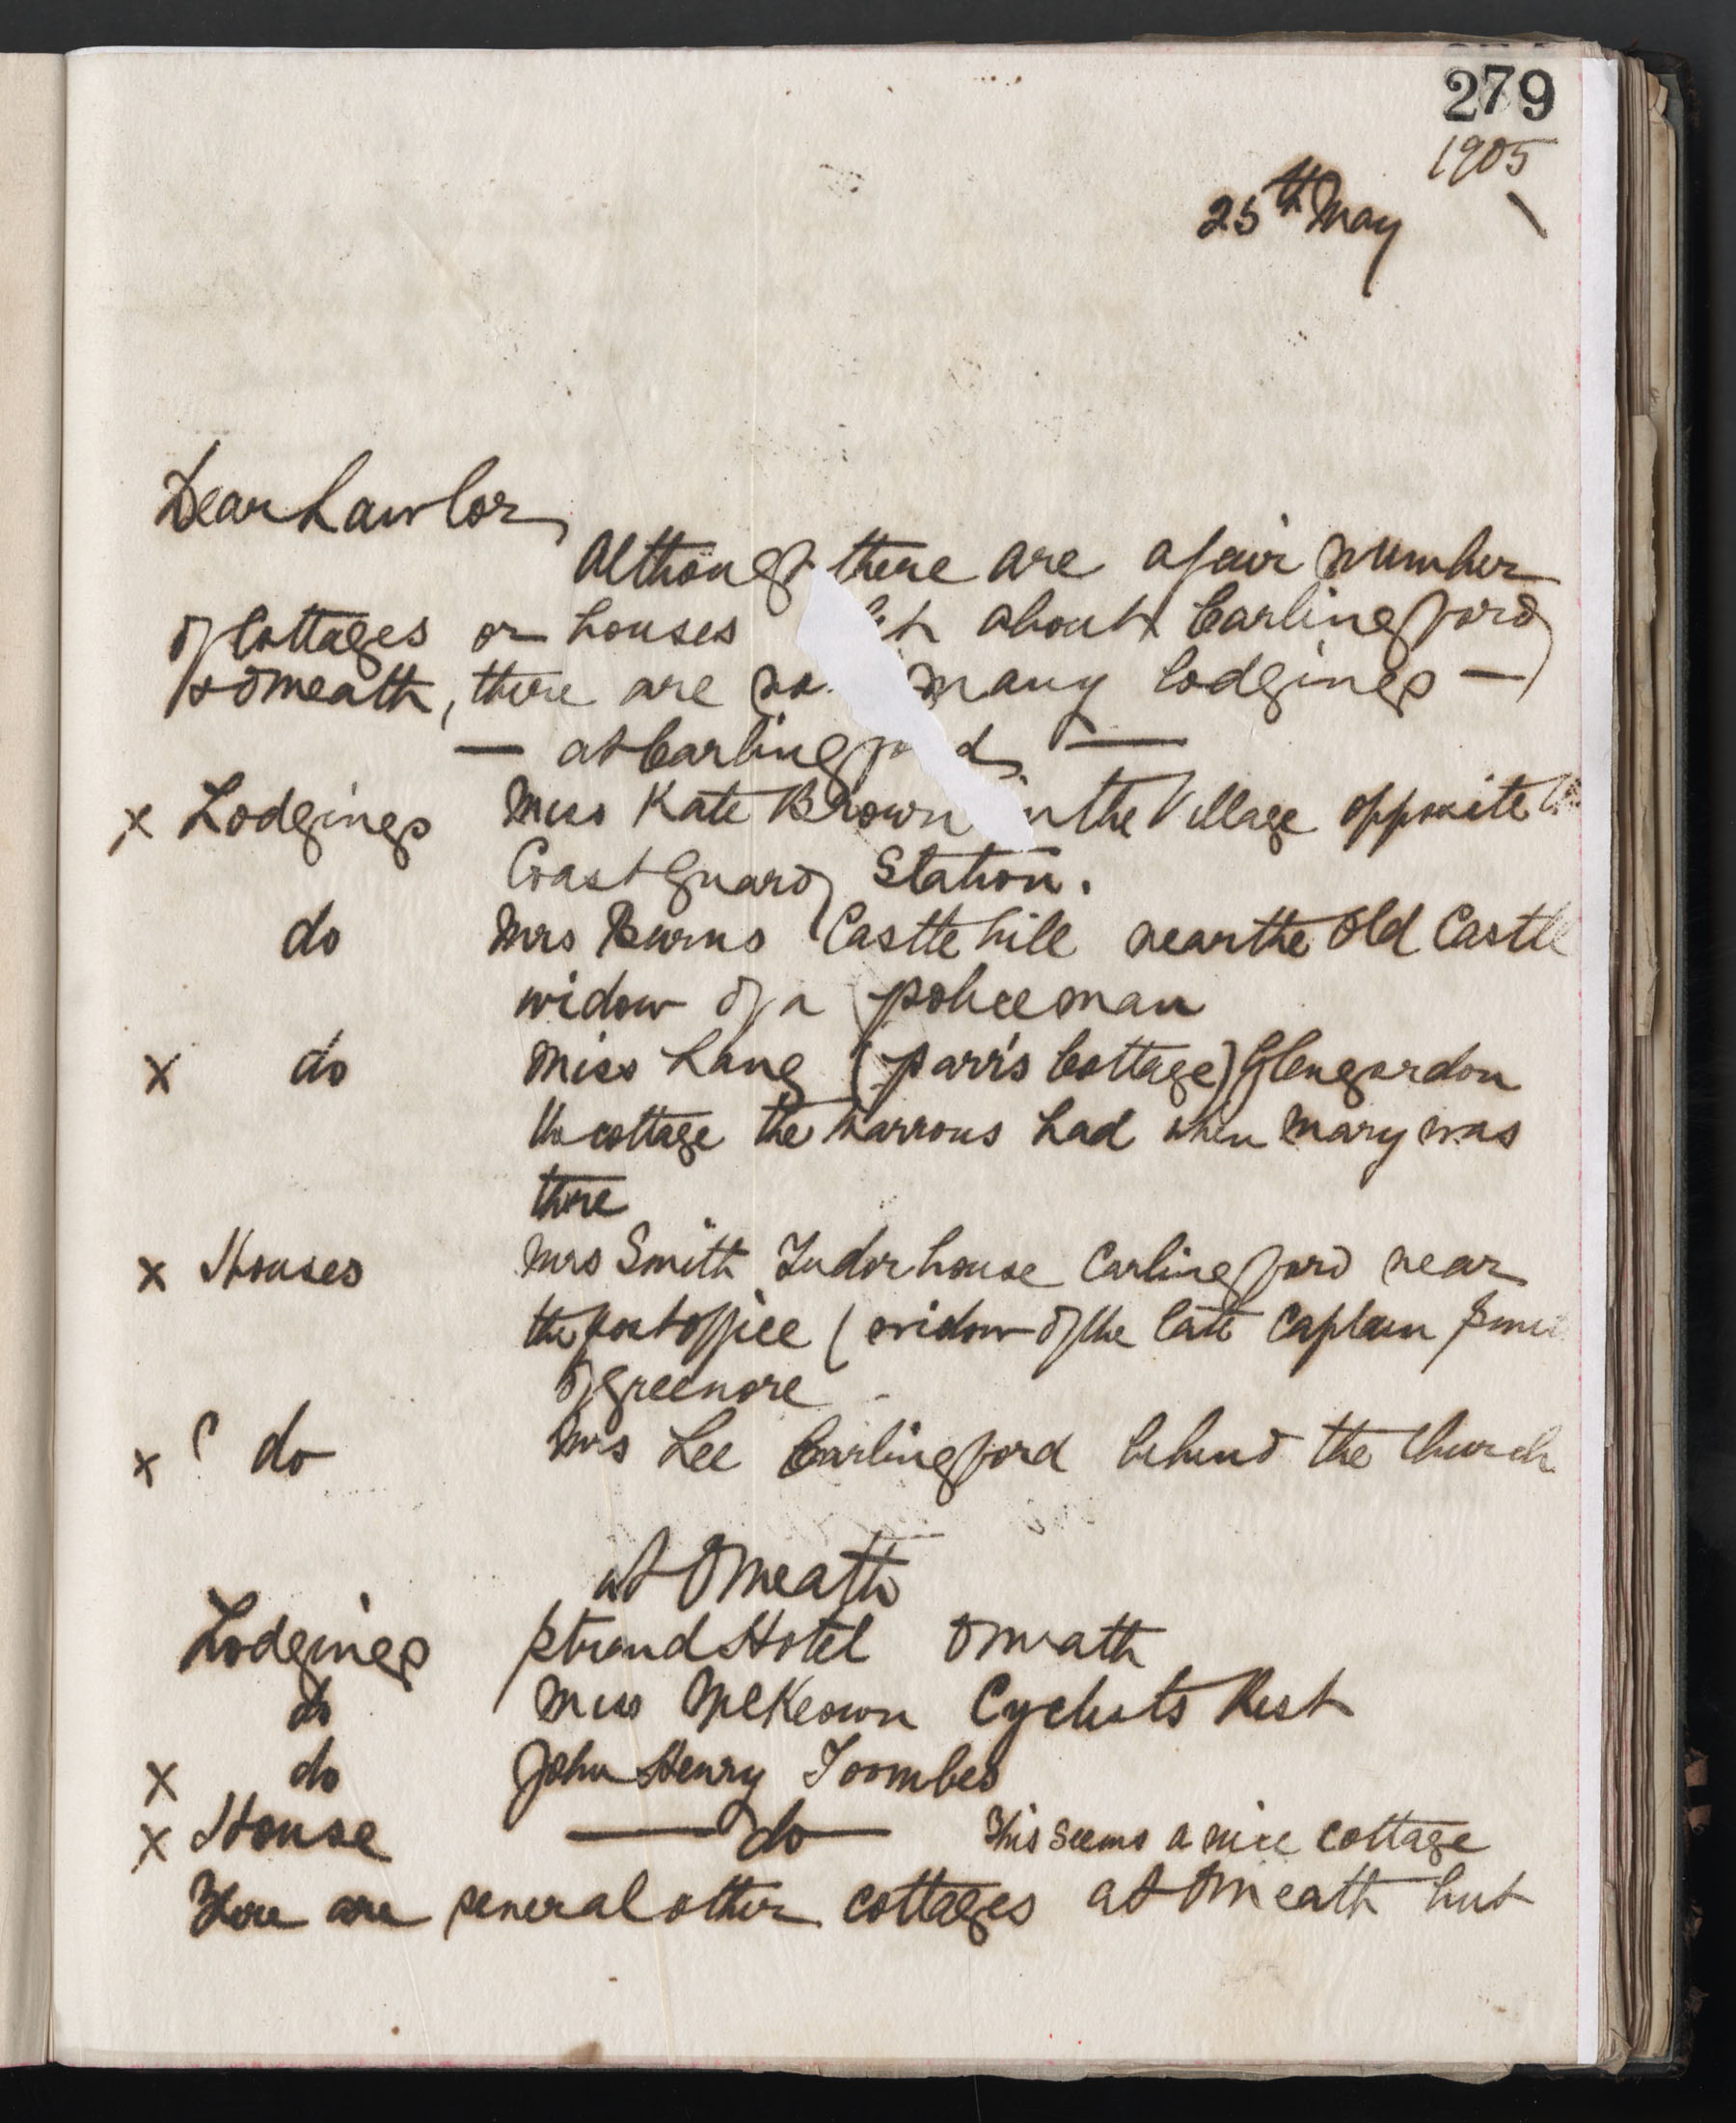 279
1905
25th May
Dear Lawlor
Although there are a fair number
of Cottages or houses about Carlingford
& Omeath, there are many lodgings —
— at Carlingford —
x Lodgings Miss Kate Brown in the Village opposite
Coastguard Station.
do Mrs Burns Castle hill near the Old Castle
widow of a policeman
x do Miss Lang (Parr's Cottage) Glengardon
the cottage the had when Mary was
there
x Houses Mrs Smith Tudor house Carlingford near
the post office (widow of the late Captain Smit
of Greenore
x ? do Mrs Lee Carlingford behind the Church
at Omeath
Lodgings Strand Hotel Omeath
do Miss McKeown Cyclists Rest
x do John Henry Toombes
x House — do — This seems a nice cottage
There are several other cottages at Omeath but